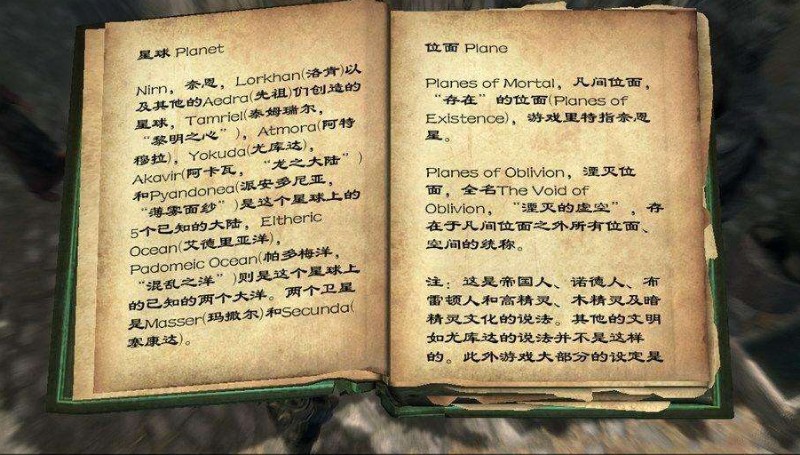 星球 Planet
Nirn，奈恩，Lorkhan(洛肯)以
及其他的Aedra(先祖)们创造的
星球，Tamriel(泰姆瑞尔，
“黎明之心”)，Atmora(阿特
穆拉)，Yokuda(尤库达)，
Akavir(阿卡瓦，“龙之大陆”)
和Pyandonea(派安多尼亚，
“薄雾面纱”)是这个星球上的
5个已知的大陆，Eltheric
Ocean(艾德里亚洋)，
Padomeic Ocean(帕多梅洋，
“混乱之洋”)则是这个星球上
的已知的两个大洋。两个卫星
是Masser(玛撒尔)和Secunda(
塞康达)。
位面 Plane
Planes of Mortal，凡间位面，
“存在”的位面(Planes of
Existence)，游戏里特指奈恩
星。
Planes of Oblivion，湮灭位
面，全名The Void of
Oblivion，“湮灭的虚空”，存
在于凡间位面之外所有位面、
空间的统称。
注：这是帝国人、诺德人、布
雷顿人和高精灵、木精灵及暗
精灵文化的说法。其他的文明
如尤库达的说法并不是这样
的。此外游戏大部分的设定是